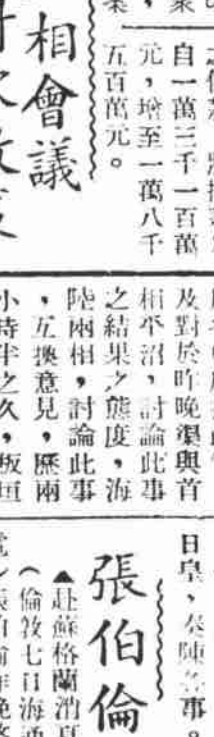 自一萬三千一百萬
元，增至一萬八千
五百萬元。
相會議
及對於昨晚與首
相平沼，討論此事
之結果之態度，海
陸兩相，討論此事
，互換意見，歷兩
小時半之久，板垣
日皇，奏陳各事。
張伯倫
▲赴蘇格蘭消夏
（倫敦七日海通
電）張伯倫昨晚